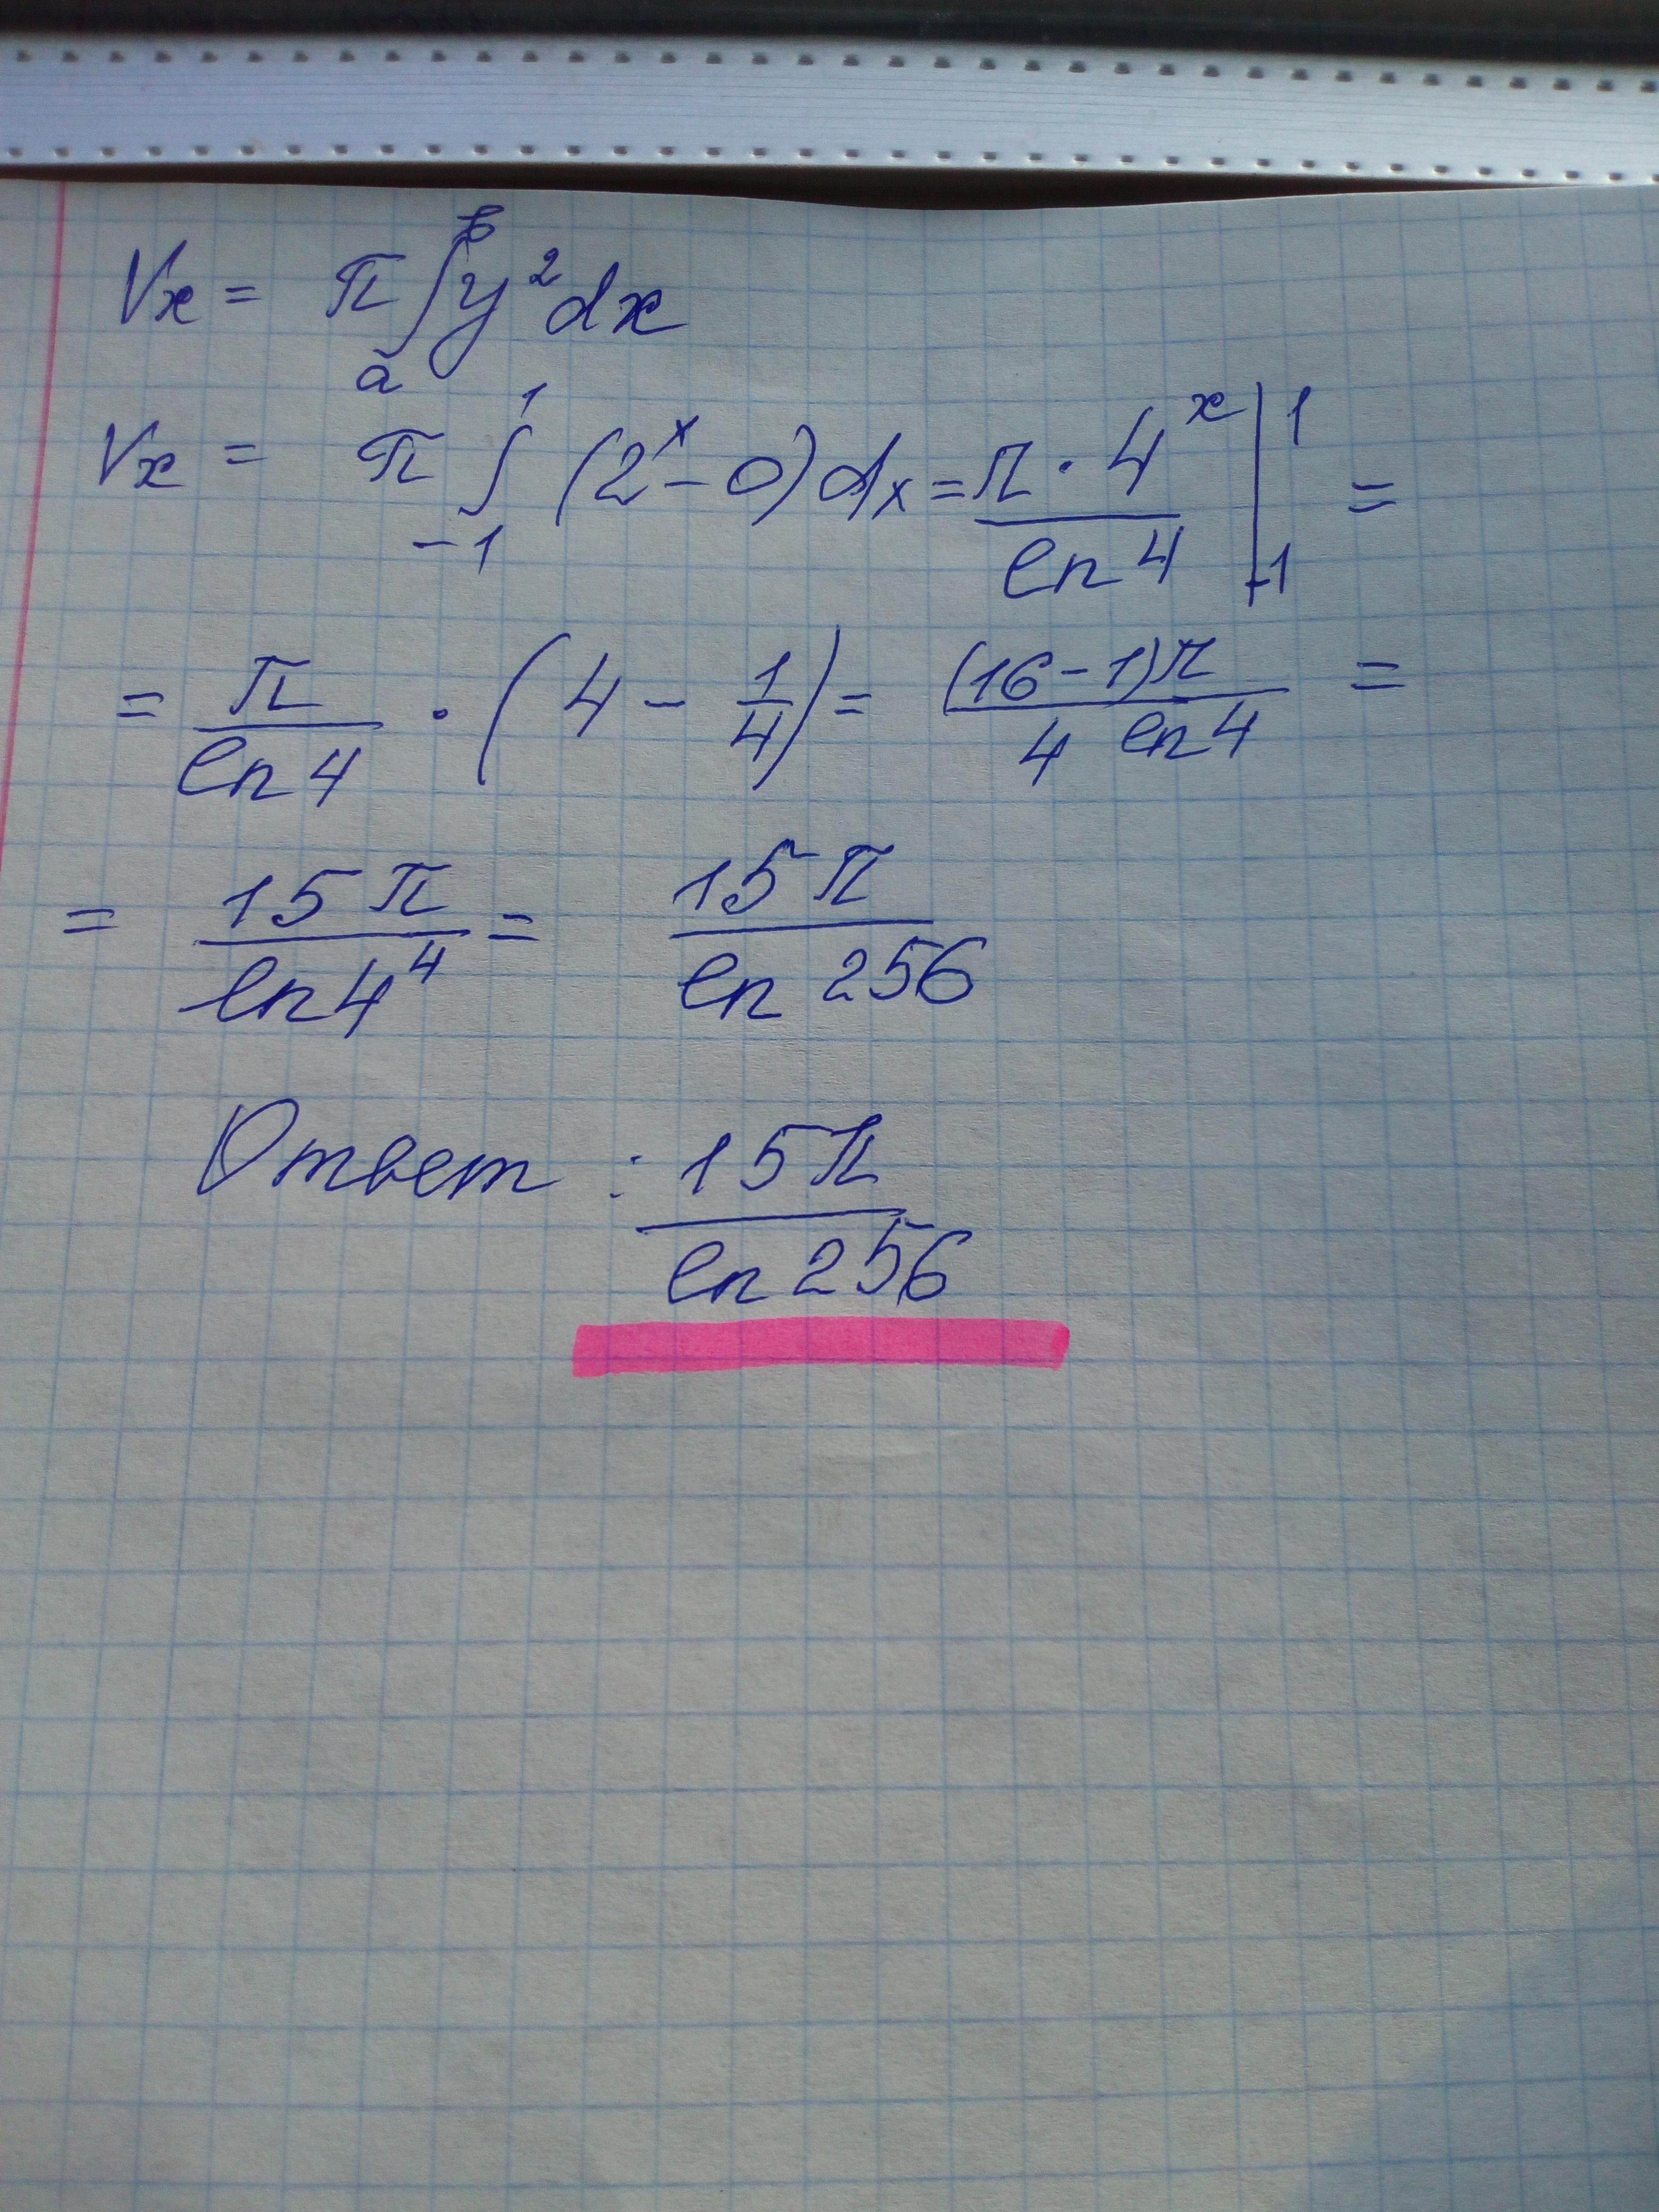 Vx = π∫ₐᵇ y² dx
Vx = π ∫₋₁¹ (2ˣ - 0) dx = π · 4ˣ / ln 4 |₋₁¹ =
= π / ln 4 · (4 - 1/4) = (16 - 1)π / 4 ln 4 =
= 15 π / ln 4⁴ = 15 π / ln 256
Ответ : 15 π / ln 256